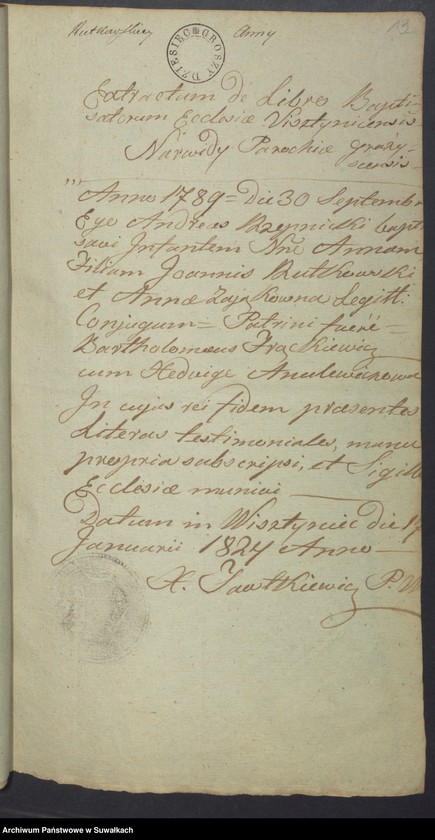 Rutkowskiey Anny
13
DZIESIĘĆ GROSZY
Extractum de Libro Bapti-
satorum Ecclesiæ Visztynicensis
Narwidy Parochiæ
Anno 1789 = Die 30 Septembr
Ego Andreas Rzepnicki bapti
savi Infantem Nne Annam
Filiam Joannis Rutkowski
et Annæ Zająkowna Legitti:
Conjugum = Patrini fuêre =
Bartholomæus Frąckiewicz
cum Hedvige Anulewiczowna
In cujus rei fidem præsentes
Literas testimoniales, manu
propria subscripsi, et Sigillo
Ecclesiæ munivi
Datum in Wisztyniec die 17
Januarii 1827 Anno
X. Jawtkiewicz P. W
Archiwum Państwowe w Suwałkach